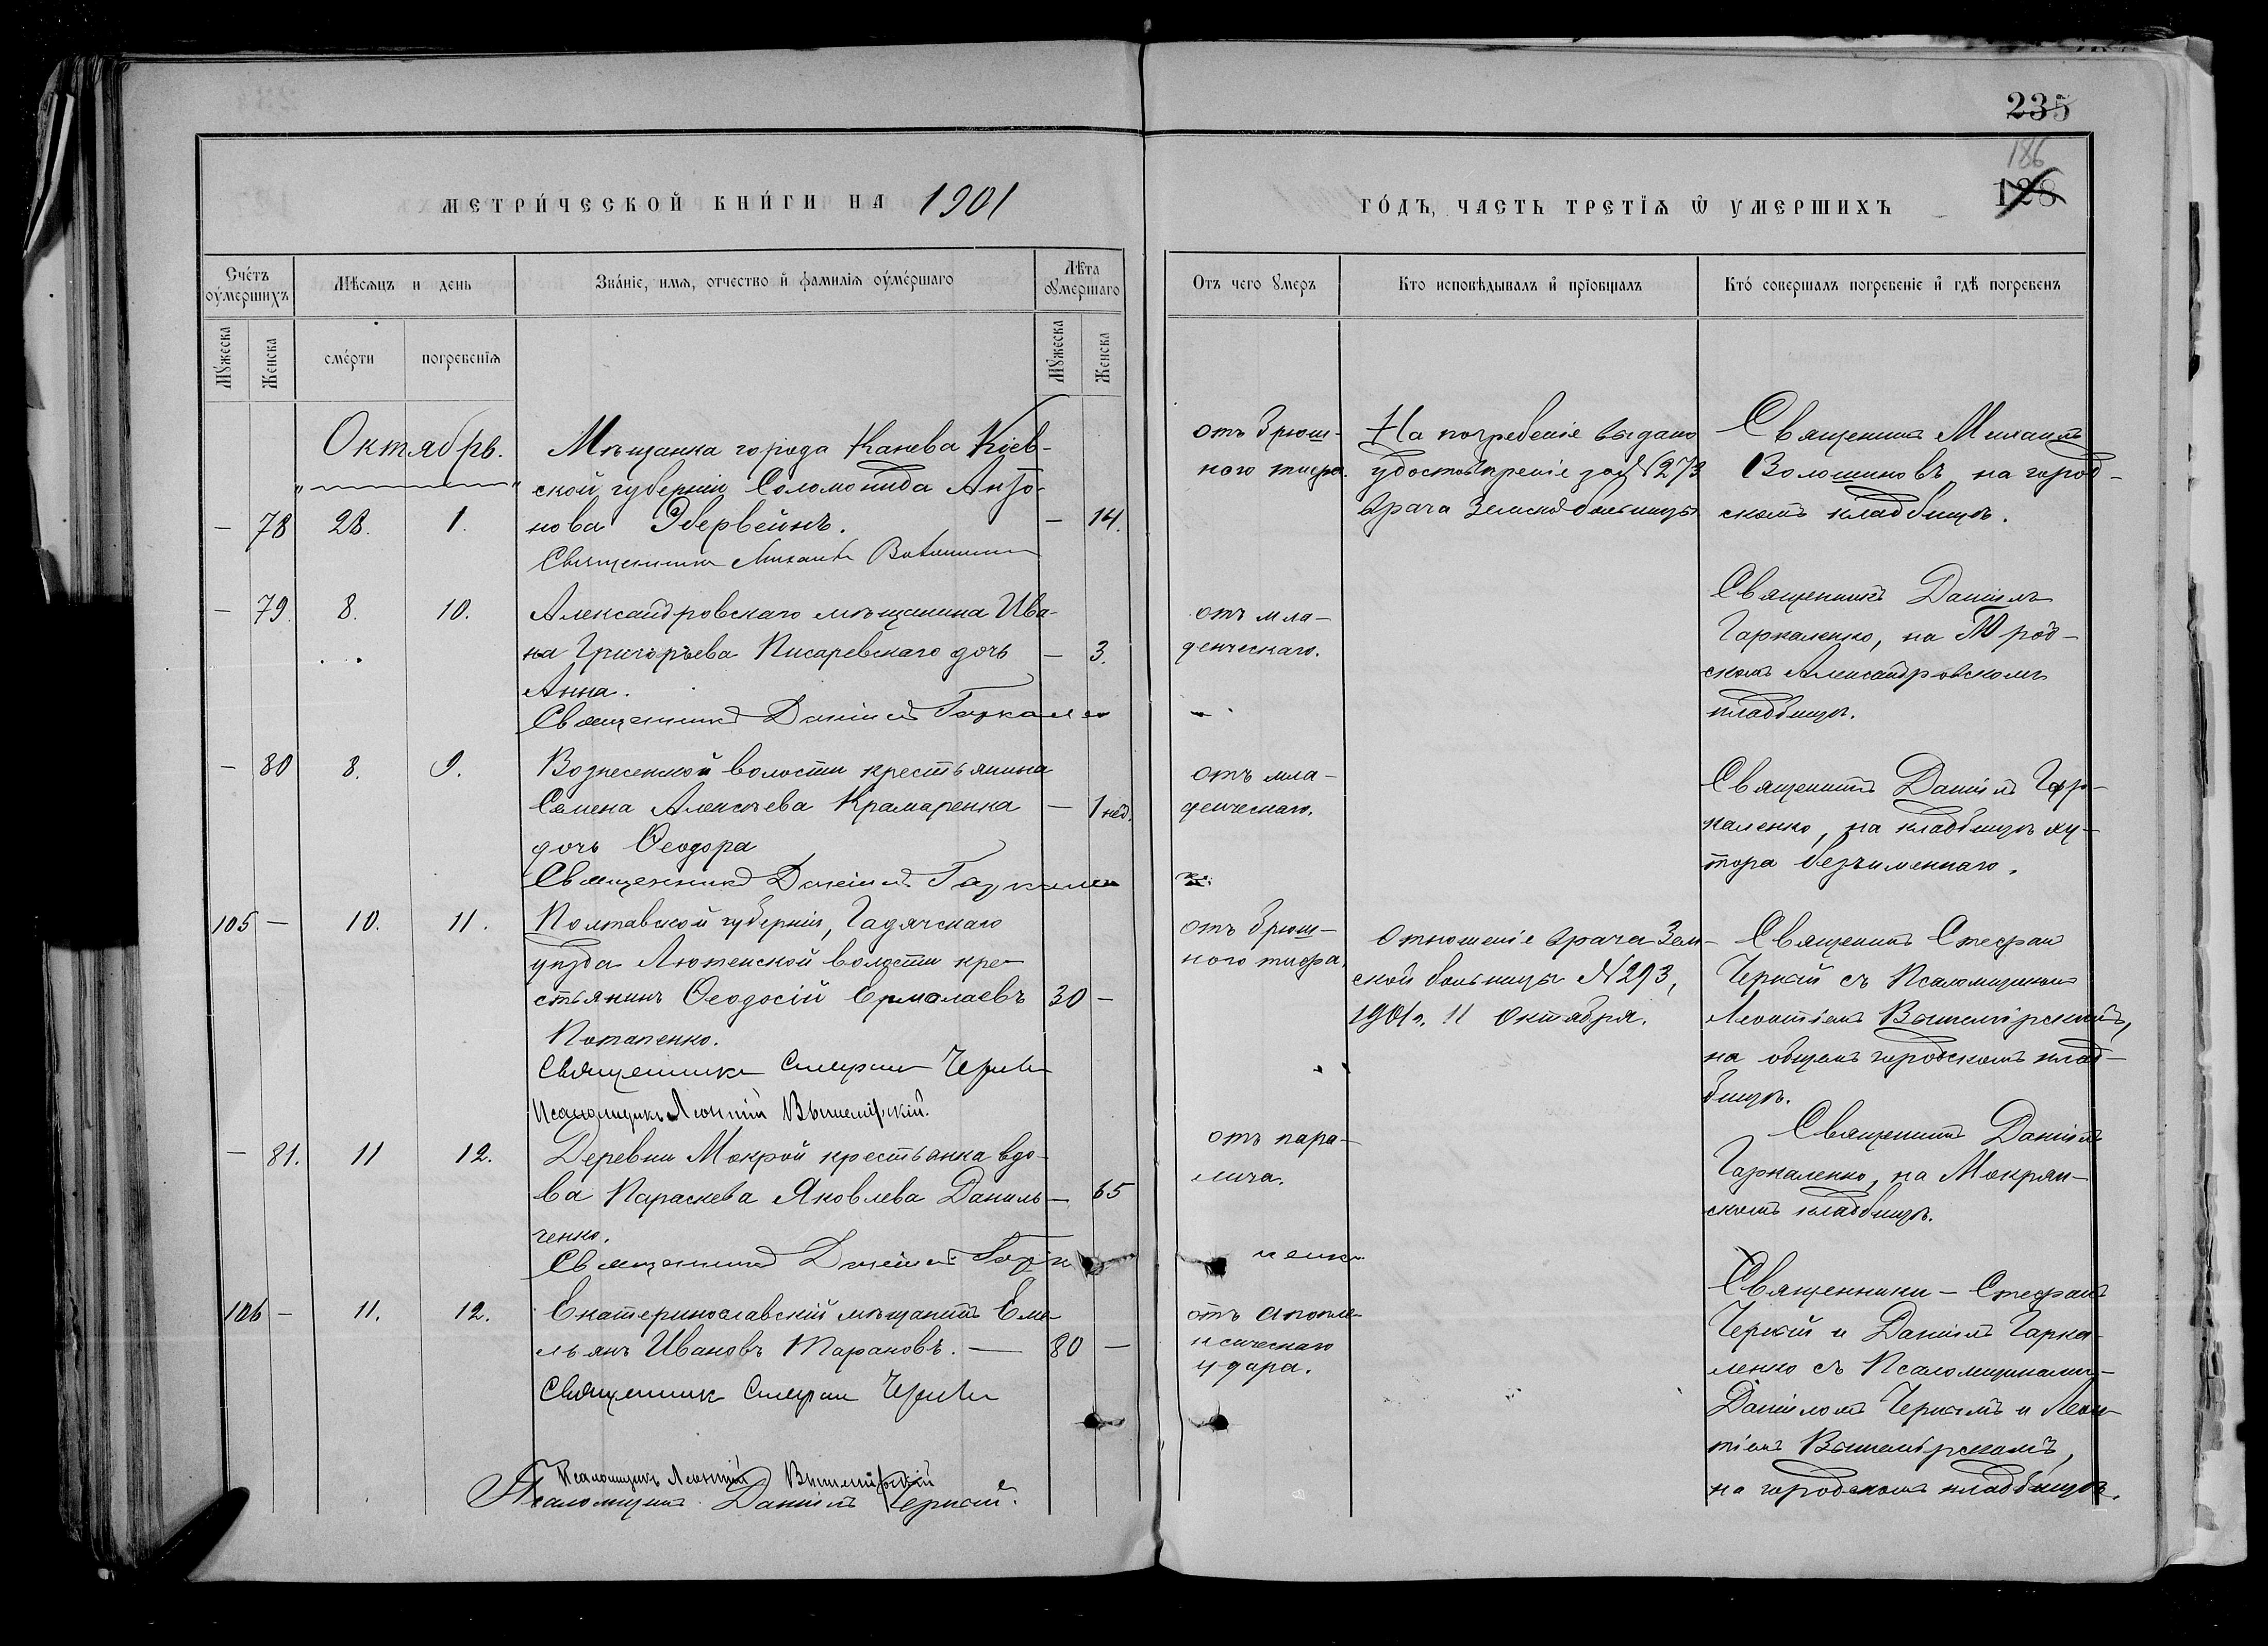 235
186
128
МЕТРИ́ЧЕСКОЙ КНИ́ГИ НА 1901
ГО́ДЪ, ЧАСТЬ ТРЕТІѦ Ѿ УМЕРШИХЪ
Сче́тъ оу҆мершихъ
Мѣсѧцъ и день
Зва́ніе, имѧ, отчество и҆ фамиліѧ оу҆ме́ршаго
Лѣта оу҆мершаго
Отъ чего ꙋмеръ
Кто исповѣдывалъ и҆ прїобщалъ
Кто́ совершалъ погребеніе и҆ гдѣ погребенъ
Мꙋжеска
Женска
сме́рти
погребеніѧ
Мꙋжеска
Женска
Октябрь.
Мѣщанка города Канева Кіев-
ской губерніи Соломонида Анто-
— 78 28. 1. нова Эбервейнъ. — 14.
Священникъ Михаилъ
отъ брюш-
ного тифа.
На погребеніе выдано
удостовѣреніе за № 273
врача Земской больницы
Священникъ Михаилъ
Волошиновъ, на город-
скомъ кладбищѣ.
— 79. 8. 10. Александровскаго мѣщанина Ива-
на Григорьева Писаревскаго дочь — 3.
Анна.
Священникъ Даніилъ Гаркален
отъ мла-
денческаго.
Священникъ Даніилъ
Гаркаленко, на Город-
скомъ Александровскомъ
кладбищѣ.
— 80 8. 9. Вознесенской волости крестьянина
Семена Алексѣева Крамаренка — 1 нед.
дочь Ѳеодора
Священникъ Даніилъ Гаркален
отъ мла-
денческаго.
Священникъ Даніилъ Гар-
каленко, на кладбищѣ ху-
тора безъименнаго.
105 — 10. 11. Полтавской губерніи, Гадячскаго
уѣзда Лютенской волости кре-
стьянинъ Ѳеодосій Ермолаевъ 30 —
Потапенко.
Священникъ Стефанъ Черкій
Псаломщикъ Леонтій Вышемірскій.
отъ брюш-
ного тифа.
Отношеніе врача Зем-
ской больницы № 293,
1901 г. 11 Октября.
Священникъ Стефанъ
Черкій съ Псаломщикомъ
Леонтіемъ Вышемірскимъ,
на общемъ городскомъ клад-
бищѣ.
— 81. 11 12. Деревни Мокрой крестьянка вдо-
ва Параскева Яковлева Даниль- — 65
ченко.
Священникъ Даніилъ Гарка
ленко
отъ пара-
лича.
Священникъ Даніилъ
Гаркаленко, на Мокрян-
скомъ кладбищѣ.
106 — 11. 12. Екатеринославскій мѣщанинъ Еме-
льянъ Ивановъ Тарановъ. — 80 —
Священникъ Стефанъ Черкій
отъ апопле-
ксическаго
удара.
Священники — Стефанъ
Черкій и Даніилъ Гарка-
ленко съ Псаломщиками —
Даніиломъ Черкимъ и Леон-
тіемъ Вышемірскимъ,
на городскомъ кладбищѣ.
Псаломщикъ Леонтій Вышемірскій
Псаломщикъ Даніилъ Черкій.